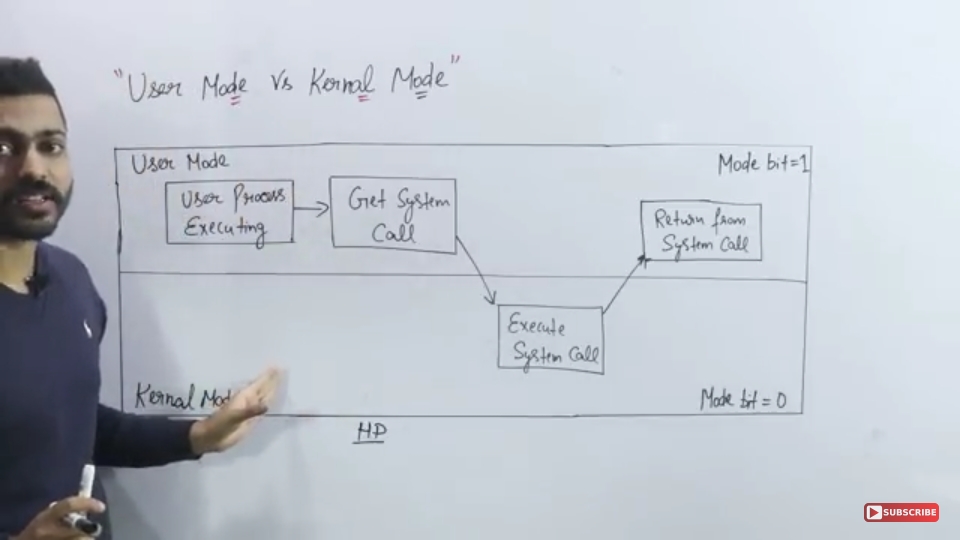 "User Mode Vs Kernal Mode"
User Mode
Mode bit=1
User Process
Executing
Get System
Call
Return from
System Call
Execute
System Call
Kernal Mod
Mode bit = 0
HD
SUBSCRIBE